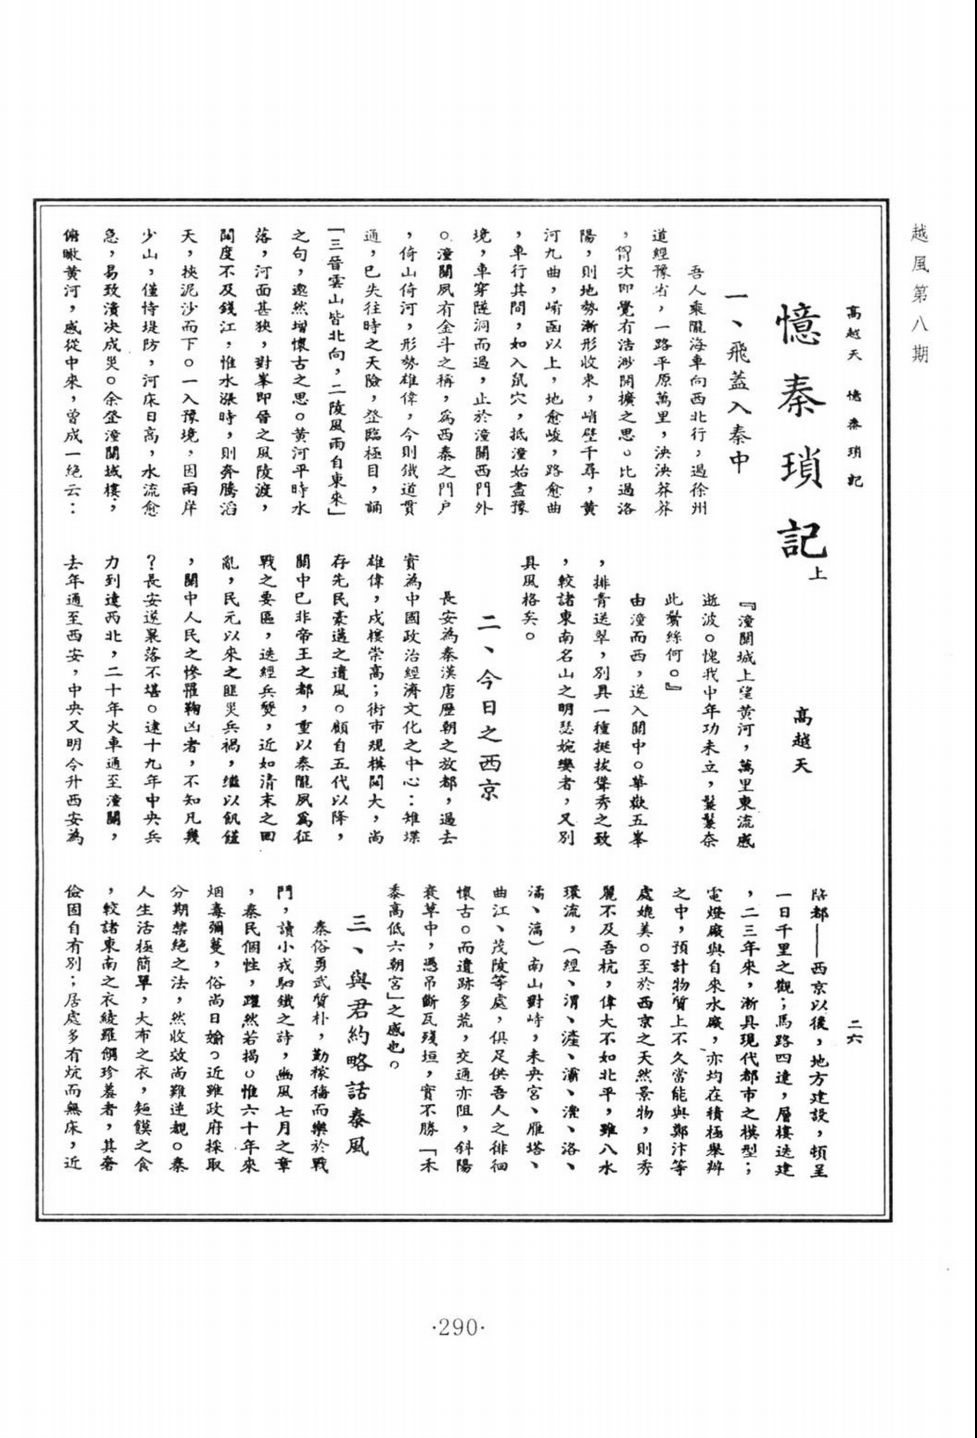 越風第八期
高越天　憶秦瑣記
二六
憶秦瑣記上
高越天
一、飛蓋入秦中
吾人乘隴海車向西北行，過徐州
道經豫省，一路平原萬里，泱泱莽莽
，胷次即覺有浩渺開擴之思。比過洛
陽，則地勢漸形收束，峭壁千尋，黃
河九曲，崤函以上，地愈峻，路愈曲
，車行其間，如入鼠穴，抵潼始盡豫
境，車穿隧洞而過，止於潼關西門外
。潼關夙有金斗之稱，爲西秦之門戶
，倚山倚河，形勢雄偉，今則鐵道貫
通，已失往時之天險，登臨極目，誦
「三晉雲山皆北向，二陵風雨自東來」
之句，邈然增懷古之思。黃河平時水
落，河面甚狹，對峯即晉之風陵渡，
闊度不及錢江，惟水漲時，則奔騰滔
天，挾泥沙而下。一入豫境，因兩岸
少山，僅恃堤防，河床日高，水流愈
急，易致潰决成災。余登潼關城樓，
俯瞰黃河，感從中來，曾成一絕云：
『潼關城上望黃河，萬里東流感
逝波。愧我中年功未立，鬢鬢奈
此鬢絲何。』
由潼而西，遂入關中。華嶽五峯
，排青送翠，別具一種挺拔聳秀之致
，較諸東南名山之明瑟婉孌者，又別
具風格矣。
二、今日之西京
長安為秦漢唐歷朝之故都，過去
實為中國政治經濟文化之中心：雉堞
雄偉，戍樓崇高；街市規模闊大，尚
存先民豪邁之遺風。顧自五代以降，
關中已非帝王之都，重以秦隴夙爲征
戰之要區，迭經兵燹，近如清末之回
亂，民元以來之匪災兵禍，繼以飢饉
，關中人民之慘罹鞠凶者，不知凡幾
？長安遂衰落不堪。逮十九年中央兵
力到達西北，二十年火車通至潼關，
去年通至西安，中央又明令升西安為
陪都——西京以後，地方建設，頓呈
一日千里之觀；馬路四達，層樓迭建
，二三年來，漸具現代都市之模型；
電燈廠與自來水廠，亦均在積極舉辦
之中，預計物質上不久當能與鄭汴等
處媲美。至於西京之天然景物，則秀
麗不及吾杭，偉大不如北平，雖八水
環流，（經、渭、滻、灞、澧、洛、
潏、滈）南山對峙，未央宮、雁塔、
曲江、茂陵等處，俱足供吾人之徘徊
懷古。而遺跡多荒，交通亦阻，斜陽
衰草中，憑吊斷瓦殘垣，實不勝「禾
黍高低六朝宮」之感也。
三、與君約略話秦風
秦俗勇武質朴，勤稼穡而樂於戰
鬥，讀小戎駟鐵之詩，豳風七月之章
，秦民個性，躍然若揭。惟六十年來
烟毒彌蔓，俗尚日媮。近雖政府採取
分期禁絕之法，然收效尚難逆覩。秦
人生活極簡單，大布之衣，䬳饃之食
，較諸東南之衣綾羅餌珍羞者，其奢
儉固自有別；居處多有炕而無床，近
·290·